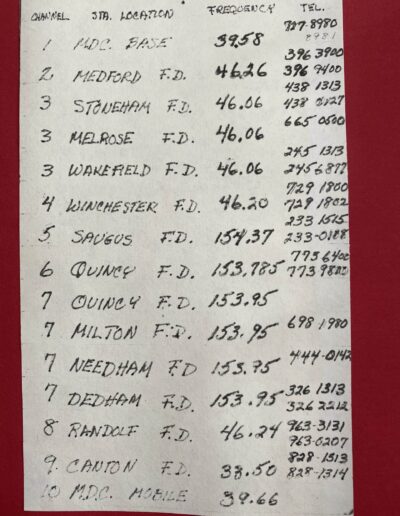 CHANNEL STA. LOCATION FREQUENCY TEL.
727-8980
8981
1 M.D.C. BASE 39.58
396 3900
2 MEDFORD F.D. 46.26 396 9400
438 1313
3 STONEHAM F.D. 46.06 438 0127
665 0500
3 MELROSE F.D. 46.06
245 1313
3 WAKEFIELD F.D. 46.06 245 6877
729 1800
4 WINCHESTER F.D. 46.20 729 1802
233 1515
5 SAUGUS F.D. 154.37 233-0188
773 6400
6 QUINCY F.D. 153.785
7 QUINCY F.D. 153.95
7 MILTON F.D. 153.95 698 1980
7 NEEDHAM F.D 153.95 444-0142
7 DEDHAM F.D. 153.95 326 1313
326 2212
8 RANDOLF F.D. 46.24 963-3131
963-0207
9. CANTON F.D. 33.50 828-1513
828-1314
10 M.D.C. MOBILE 39.66